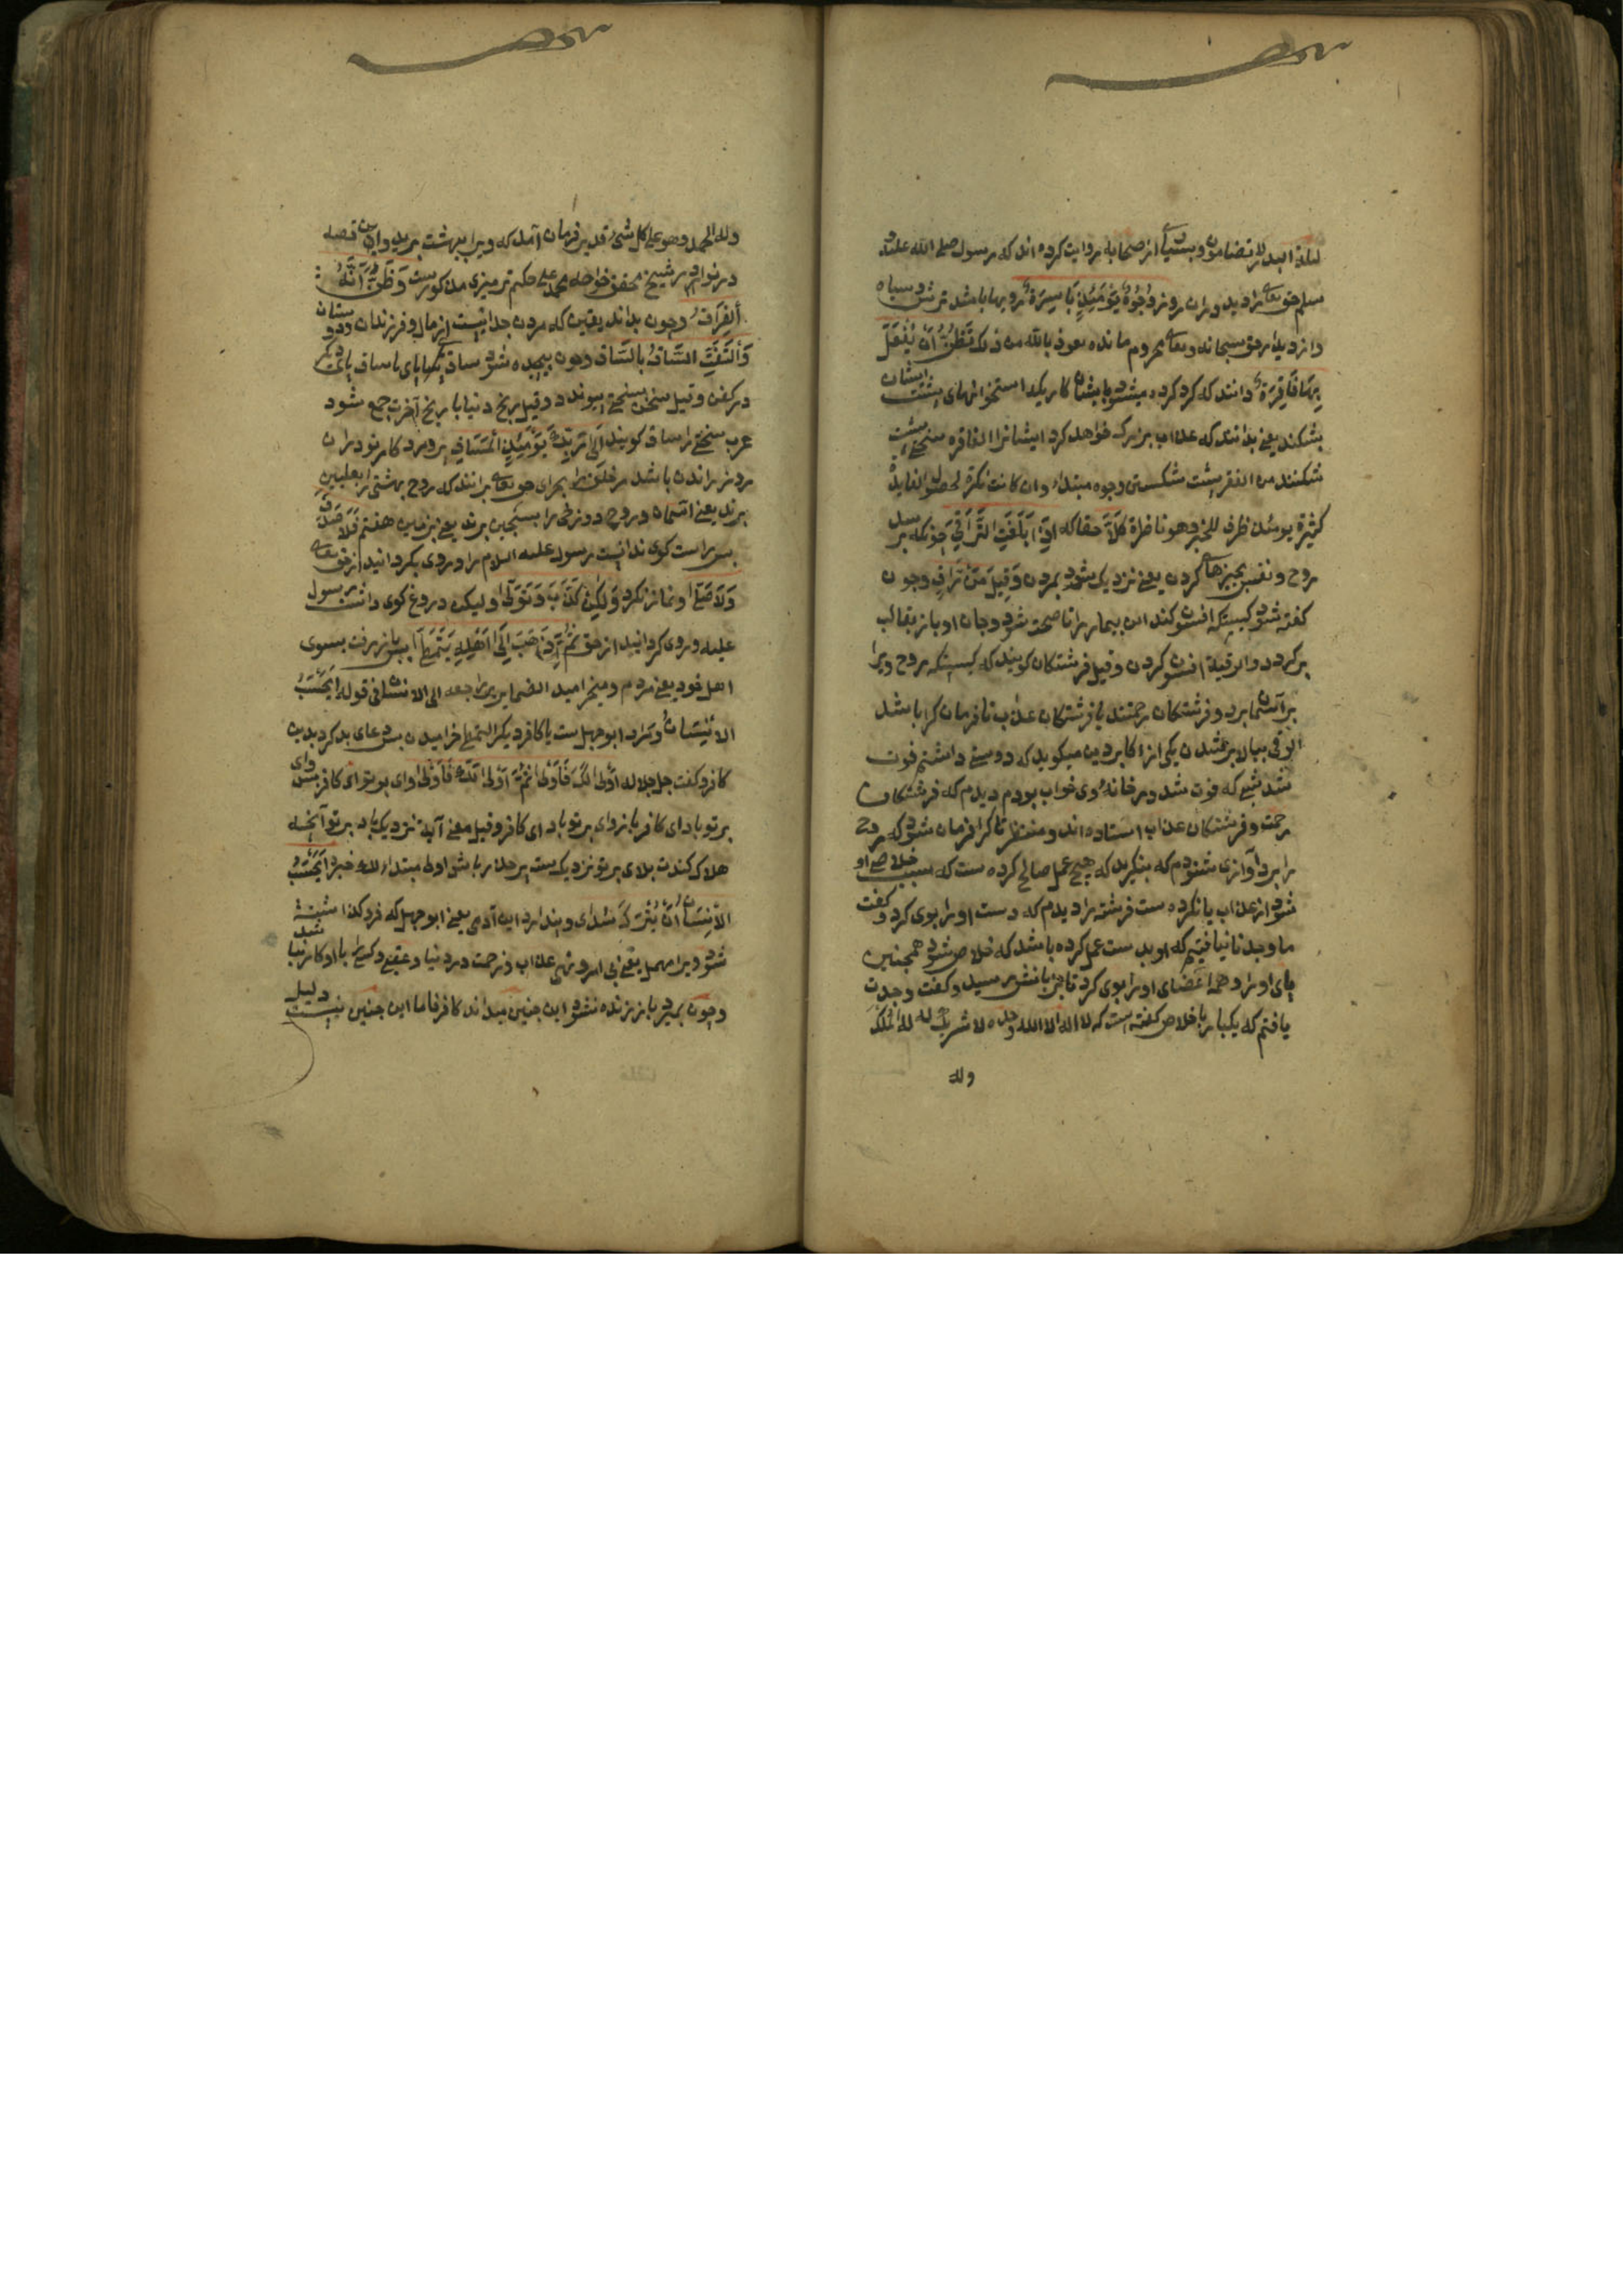 لیلة البدر لا تضامون و بستیان از صحابه روایت کرده اند که رسول صلی الله علیه و
سلم حق تعالی را دید و در آن روز وُجُوهٌ يَوْمَئِذٍ بَاسِرَةٌ رویها باشد ترش و سیاه
و از دیدار حق سبحانه و تعالی محروم مانده نعوذ بالله من ذلک تَظُنُّ أَنْ يُفْعَلَ
بِهَا فَاقِرَةٌ دانند که کرد کرده میشود بایشان کاریکه استخوانهای پشت ایشان
بشکند یعنی بدانند که عذاب بزرک خواهد کرد ایشانرا الفاقره سختی پشت
شکننده من الفقر پشت شکستن وجوه مبتداء وان کانت نکرة لحصول الفایدة
کثیرة یومئذ ظرف للخبر و هو ناظرة كَلَّا حقا که إِذَا بَلَغَتِ التَّرَاقِيَ چونکه برسد
روح و نفس بچنبرهای کردن یعنی نزدیک شود بمردن وَقِيلَ مَنْ رَاقٍ و چون
کفته شود کیستکه افسون کند این بیمار را تا صحت شود و جان او باز بقالب
بر کردد و الرقیة افسون کردن و قیل فرشتکان کویند که کیستکه روح ویرا
بر آسمان برد و فرشتکان رحمتند یا فرشتکان عذاب تا فرمان کرا باشد
الرقی ببالا بر شدن یکی از اکابر دین میکوید که دوستی داشتم فوت
شد شبی که فوت شد در خانهٔ وی خواب بودم دیدم که فرشتکان
رحمت و فرشتکان عذاب استاده اند و منتظر تا کرا فرمان شود که روح
را برد آوازی شنودم که بنکرید که هیچ عمل صالح کرده ست که سبب خلاصی او
شود از عذاب یا نکرده ست فرشته را دیدم که دست او را بوی کرد و کفت
ما وجدنا نیافتیم که او بدست عمل کرده باشد که خلاص شود همچنین
پای او را و همه اعضای او را بوی کرد تا جز بانش رسید و کفت وجدت
یافتم که یکبار با خلاص کفته است که لا اله الا الله وحده لا شریک له له الملک
وله
وله الحمد وهو علی کل شیٔ قدیر فرمان آمد که ویرا ببهشت برید و این قصه
در نوادر شیخ محقق خواجه محمد علی حکیم ترمیزی مذکورست وَظَنَّ أَنَّهُ
الْفِرَاقُ و چون بداند یقین که مردن جدائیست از مال و فرزندان و دوستان
وَالْتَفَّتِ السَّاقُ بِالسَّاقِ و چون پیچیده شود ساق یکپای با ساق پای دیکر
در کفن و قیل سختی بسختی پیوندد و قیل رنج دنیا با رنج آخرت جمع شود
عرب سختی را ساق کویند إِلَى رَبِّكَ يَوْمَئِذٍ الْمَسَاقُ پروردکار تو در آن
روز راندن باشد مر خلق را بجزای حق تعالی برانند که روح بهشتی را بعلیین
برند یعنی آسمان و روح دوزخی را بسجین برند یعنی بزمین هفتم فَلَا صَدَّقَ
پس راست کوی ندانست رسول علیه السلام را و روی بکردانید از حق تعالی
وَلَا صَلَّى و نماز نکرد وَلَكِنْ كَذَّبَ وَتَوَلَّى و لیکن دروغ کوی دانست رسول
علیه و روی کردانید از حق ثُمَّ ذَهَبَ إِلَى أَهْلِهِ يَتَمَطَّى پس باز رفت بسوی
اهل خود یعنی مردم و میخرامید الضمایر راجعه الی الانسان فی قوله أَيَحْسَبُ
الْإِنْسَانُ و مراد ابو جهل ست یا کافر دیکر التمطی خرامیدن پس دعای بد کرد بدین
کافر و کفت جل جلاله أَوْلَى لَكَ فَأَوْلَى ثُمَّ أَوْلَى لَكَ فَأَوْلَى وای بر تو ای کافر پس وای
بر تو باد ای کافر باز وای بر تو باد ای کافر و قیل معنی آیة نزدیک باد بر تو آنچه
هلاک کندت بلای بر تو نزدیک ست پر حذر باش اولی مبتداء لک خبره أَيَحْسَبُ
الْإِنْسَانُ أَنْ يُتْرَكَ سُدًى و پندارد این آدمی یعنی ابو جهل که فرو کذاشته
شود ویرا مهمل یعنی بی امر و نهی و عذاب و رحمت در دنیا و عقبی و کسی را با او کار نباشد
و چون بمیرد باز زنده نشود این چنین میداند کافر فاما این چنین نیست دلیل